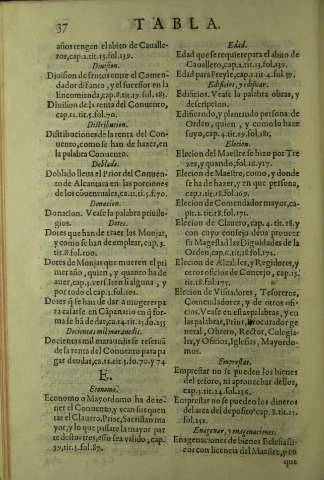 37 TABLA.
años tengen el abito de Cauallero,cap.1.tit.15.fol.139.
Diuision.
Diuision de frutos entre el Comendador difunto, y el sucessor en la Encomienda,cap.8.tit.19.fol.185.
Diuision de la renta del Conuento, cap.12.tit.5.fol.70.
Distribucion.
Distribuciones de la renta del Conuento,como se han de hazer,en la palabra Conuento.
Doblado.
Doblado lleua el Prior del Conuento de Alcantara en las porciones de los conuentuales,ca.11.tit.5.fo.70.
Donacion.
Donacion. Vease la palabra priuilegios.
Dotes.
Dotes que han de traer las Monjas, y como se han de emplear,cap.3.
tit.8.fol.100.
Dotes de Monjas que mueren el primer año, quien, y quanto ha de auer,cap.3.vers.Item si alguna, y por todo el cap.3.fol.101.
Dotes q̃ se han de dar a mugeres para casarse en Capanario en q̃ forma se hã de dar,ca.14.tit.15.fo.155
Docientas mil marauedis.
Docientas mil marauedis se reserua de la renta del Conuento para pagar deudas,ca.11.tit.5.fo.70.y 74
E.
Economo.
Economo o Mayordomo ha de tener el Conuento,y vean sus quentas el Clauero,Prior,Sacristan mayor,y lo que passare la mayor parte destos tres,esso sea valido, cap.
39.tit.5.fol.87.
Edad.
Edad que se requiere para el abito de Cauallero,cap.1.tit.15.fol.139.
Edad para Freyle,cap.1.tit.4.fol.59.
Edificios, y edificar.
Edificios. Vease la palabra obras, y descripcion.
Edificando,y plantando persona de Orden, quien, y como lo haze suyo,cap.4.tit.19.fol.181.
Eleccion.
Elecion del Maestre se hizo por Treze,y quando,fol.12.517.
Elecion de Maestre, como, y donde se ha de hazer, y en que persona, cap.1.tit.18.fol.169.
Elecion de Comendador mayor,capit.2.tit.18.fol.171.
Elecion de Clauero, cap.4.tit.18.y con cuyo consejo deua proueer su Magestad las Dignidades de la Orden,cap.6.tit.18.fol.171.
Elecion de Alcaldes,y Regidores,y otros oficios de Concejo, cap.15.
tit.18.fol.175.
Elecion de Visitadores, Tesoreros, Comendadores, y de otros oficios. Vease en estas palabras, y en las palabras,Prior,Procurador general, Obrero, Rector, Colegiales, y Oficios,Iglesias, Mayordomos.
Emprestar.
Emprestar no se pueden los bienes del tesoro, ni aprouechar dellos, cap.3.tit.24.fol.256.
Emprestar no se pueden los dineros del arca del deposito cap.8.tit.15.
fol.151.
Enagenar, y enagenaciones.
Enagenaciones de bienes Eclesiasticos con licencia del Maestre,y en
que